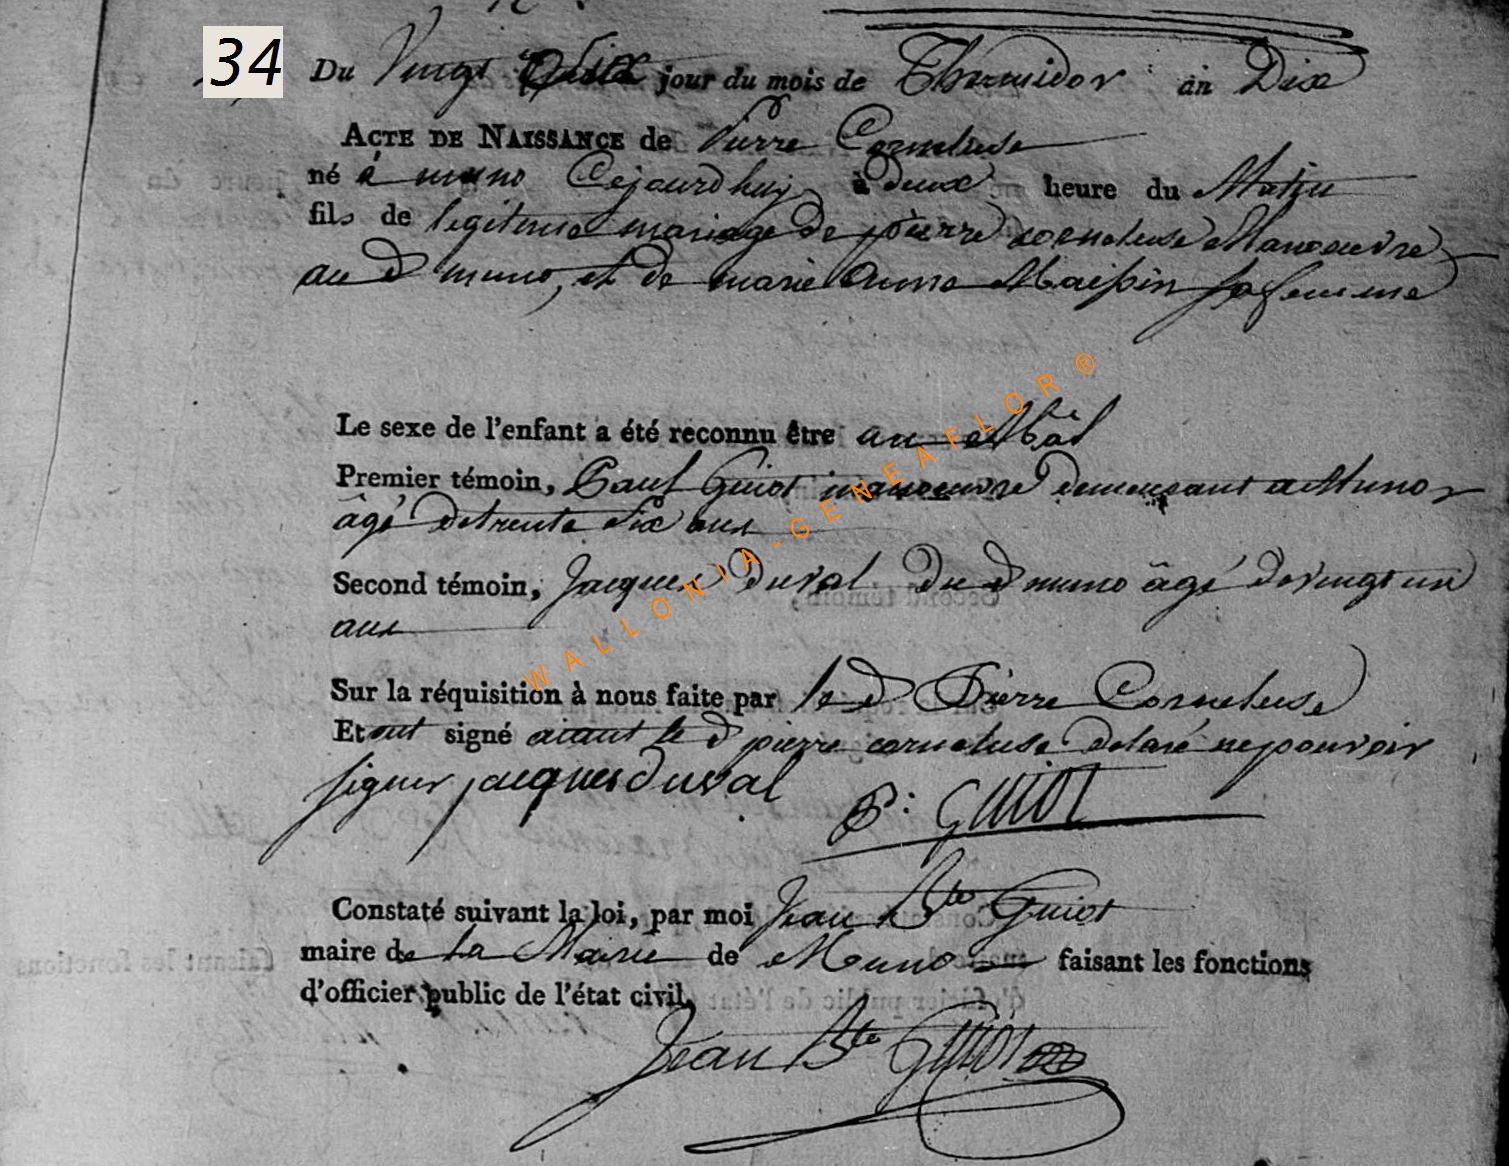 34
Du Vingt Six jour du mois de Thermidor an Dix
ACTE DE NAISSANCE de Pierre Corneluse
né à muno Cejourdhuy à deux heure du Matin
fils de legitime mariage de pierre corneluse Manoeuvre
au d muno, et de marie anne Maissin sa femme
Le sexe de l'enfant a été reconnu être au Mâl
Premier témoin, Paul Guiot manoeuvre demeurant a Muno
âgé de trente Six ans
Second témoin, Jacques duval du d muno âgé de vingt un
ans
Sur la réquisition à nous faite par le d Pierre Corneluse
Et ont signé aiant le d pierre corneluse delaré ne pouvoir
signer jacques duval P: GUIOT
Constaté suivant la loi, par moi Jean Bte Guiot
maire de La Mairie de Muno faisant les fonctions
d'officier public de l'état civil.
Jean Bte GUIOT
WALLONIA-GENEAFLOR®